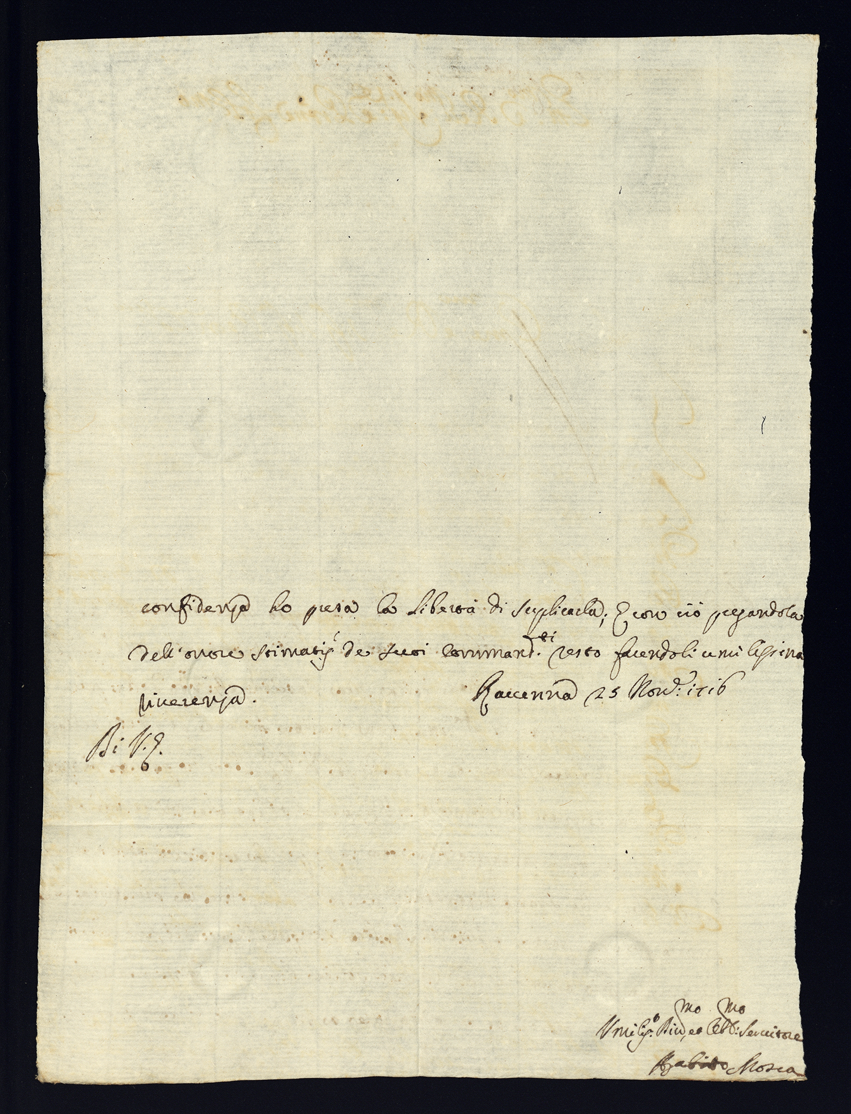 confidenza ho presa la libertà di supplicarla; E con ciò pregandola
dell'onore stimatis.i de suoi Command.ti resto facendoli umilissima
riverenza. Ravenna 25 Nov.e 1716
Di V.E.
Umilis.o Div.mo ed Obbl.mo Servitore
Mosca